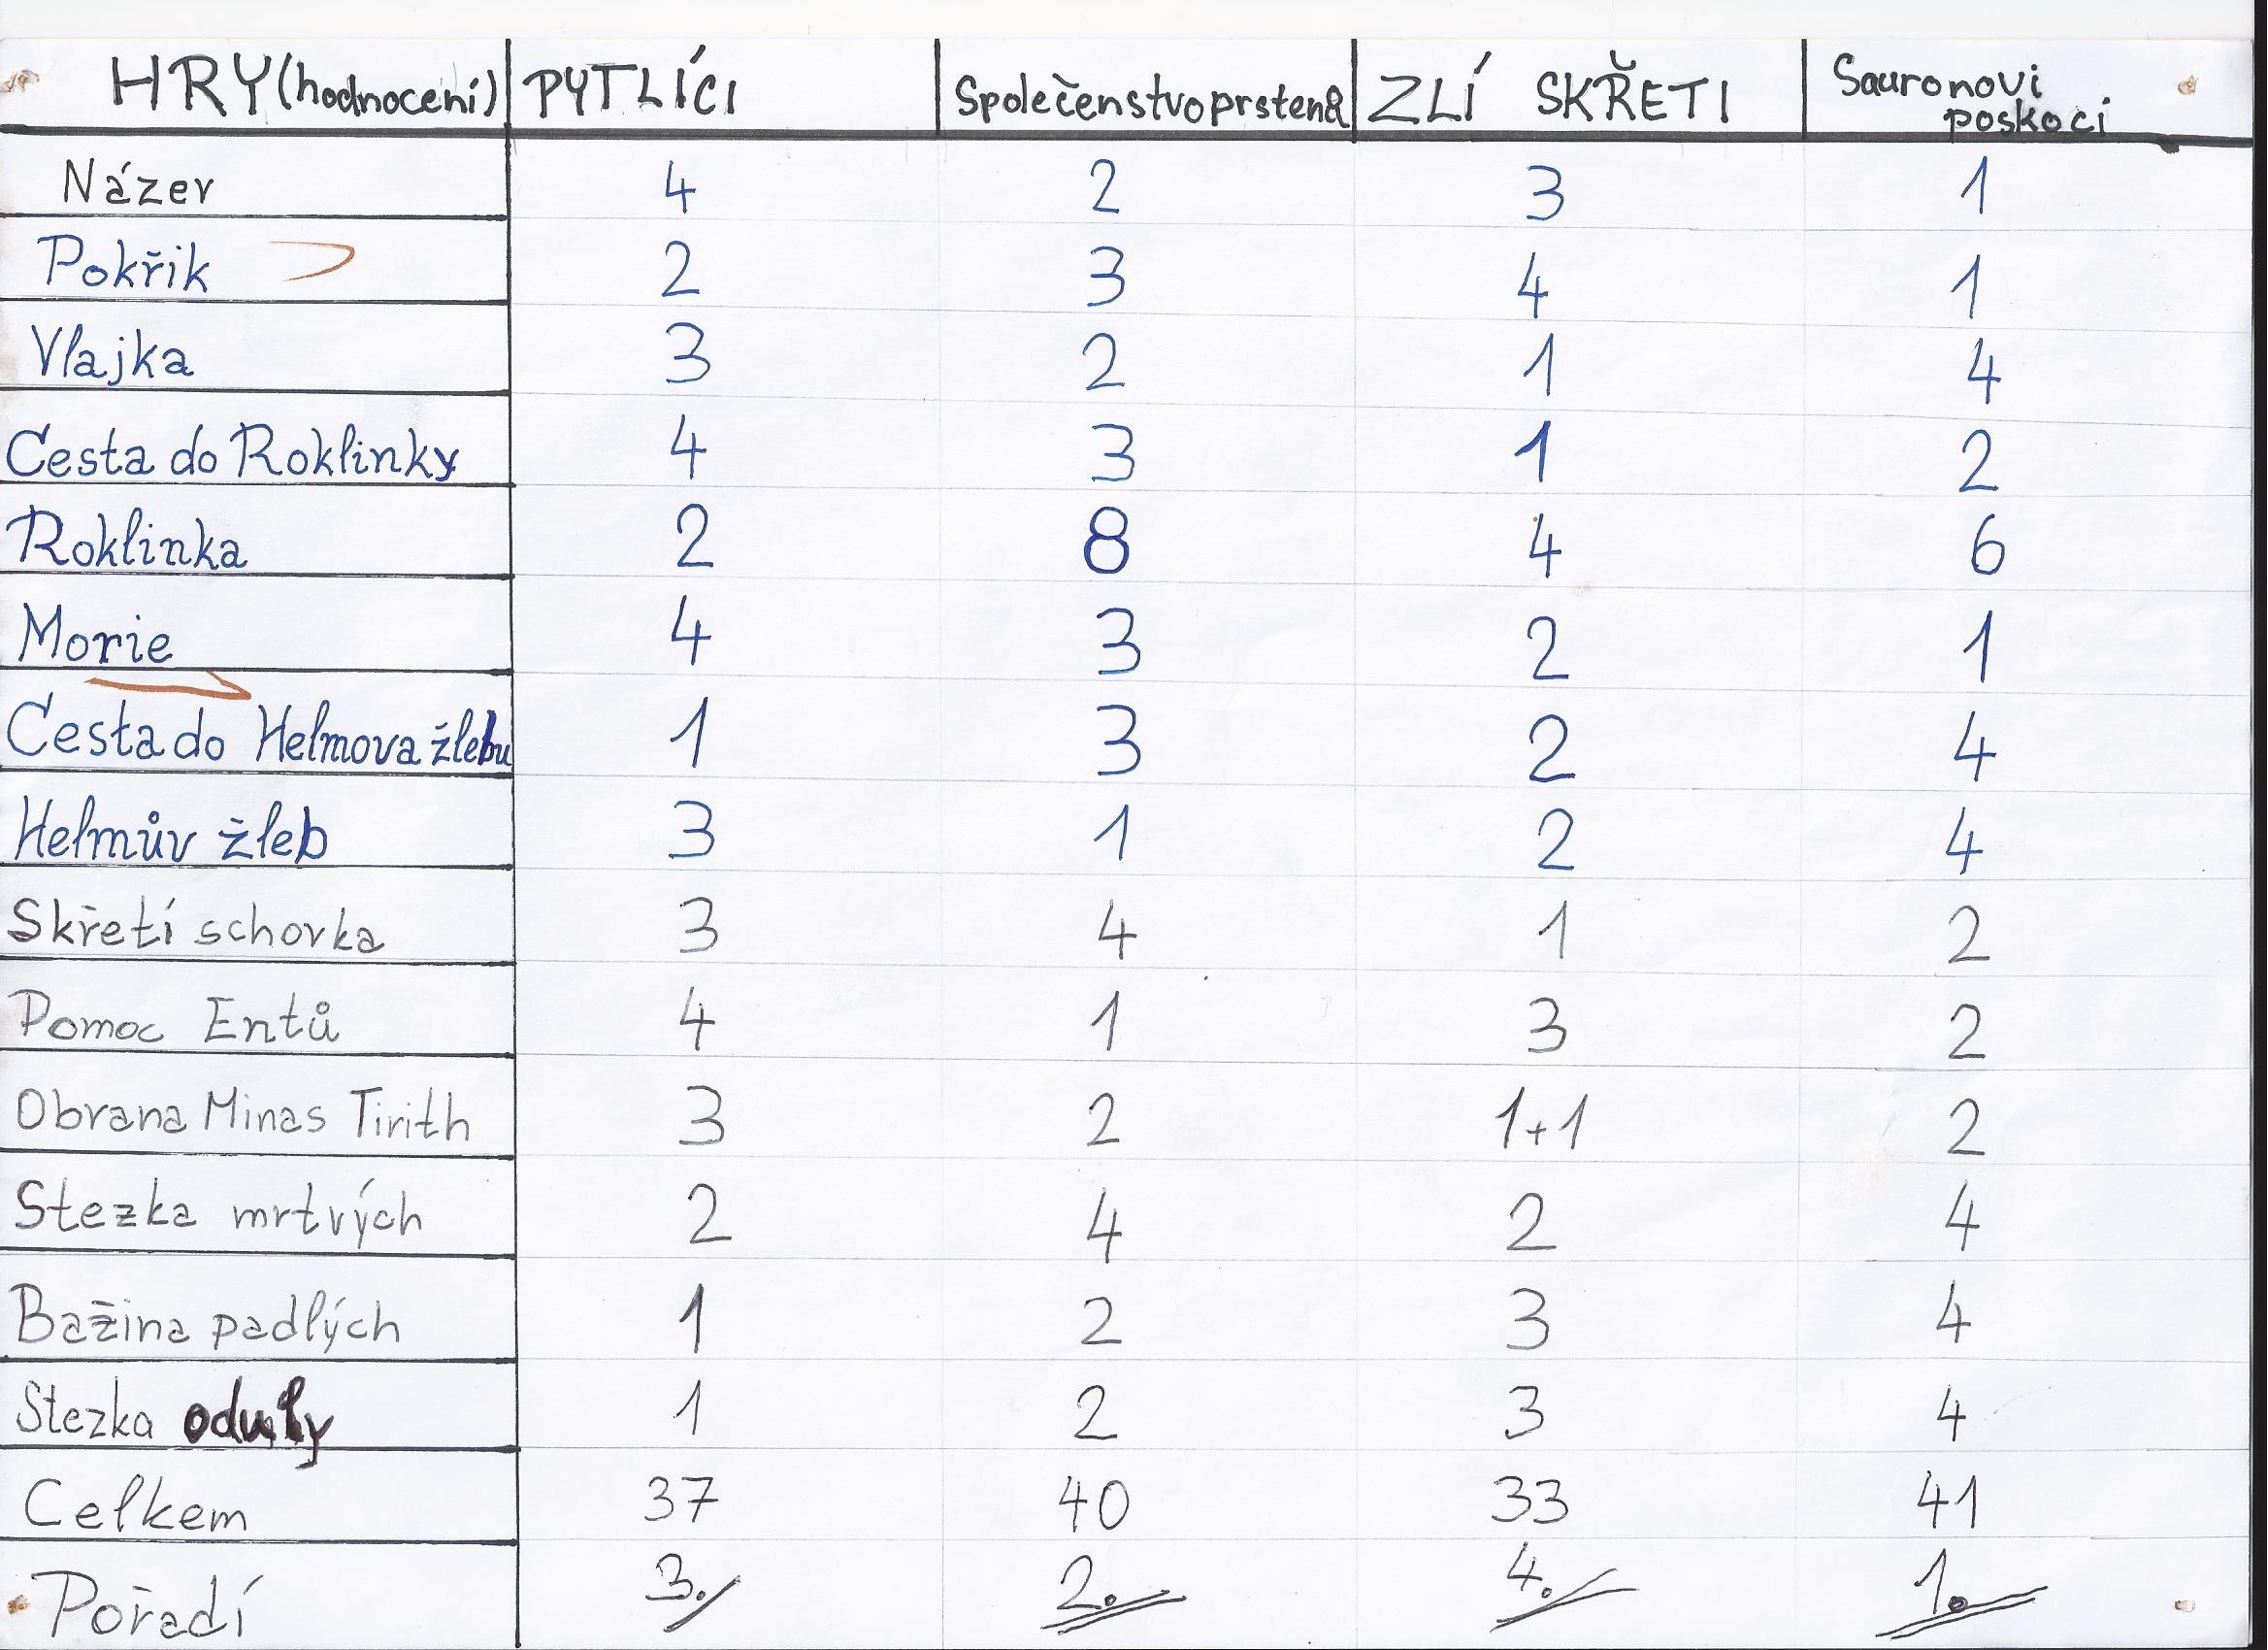 HRY (hodnocení) PYTLÍCI Společenstvo prstenů ZLÍ SKŘETI Sauronovi poskoci
Název 4 2 3 1
Pokřik 2 3 4 1
Vlajka 3 2 1 4
Cesta do Roklinky 4 3 1 2
Roklinka 2 8 4 6
Morie 4 3 2 1
Cesta do Helmova žlebu 1 3 2 4
Helmův žleb 3 1 2 4
Skřetí schovka 3 4 1 2
Pomoc Entů 4 1 3 2
Obrana Minas Tirith 3 2 1+1 2
Stezka mrtvých 2 4 2 4
Bažina padlých 1 2 3 4
Stezka 1 2 3 4
Celkem 37 40 33 41
Pořadí 3. 2. 4. 1.